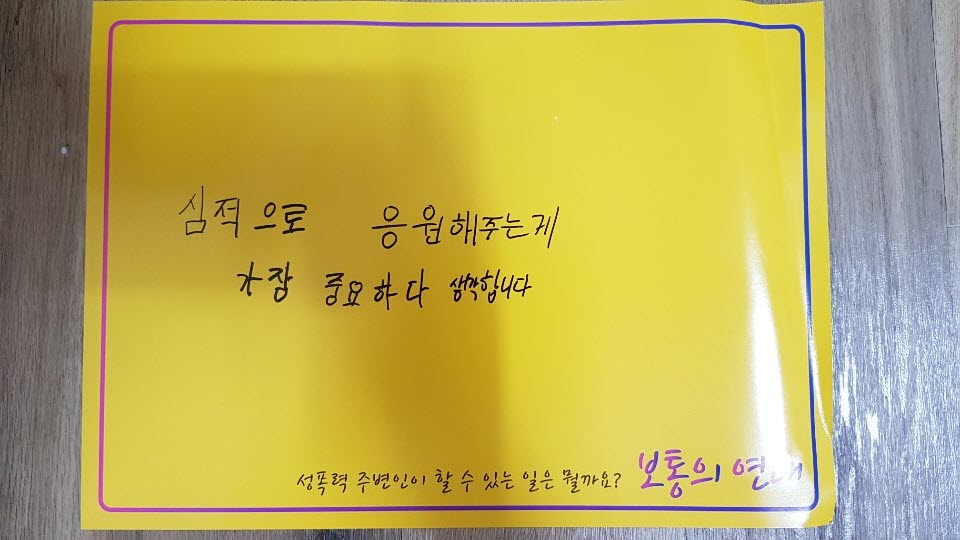 심적으로 응원해주는게
가장 중요하다 생각합니다
성폭력 주변인이 할 수 있는 일은 뭘까요? 보통의 연대